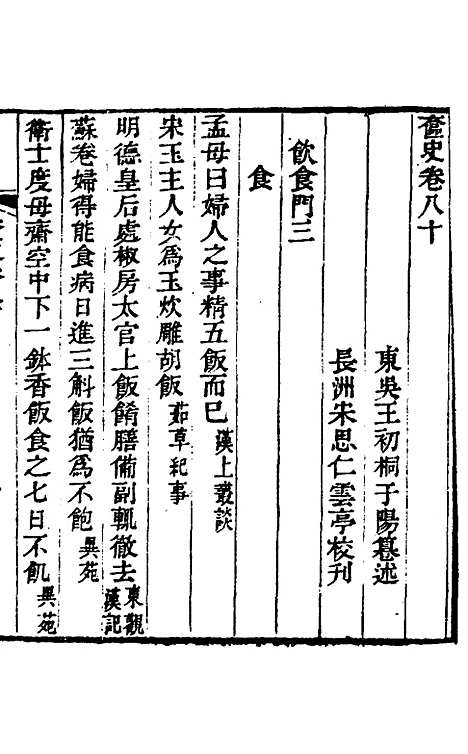 奩史卷八十
東吳王初桐于陽纂述
長洲朱思仁雲亭校刊
飲食門三
食
孟母曰婦人之事精五飯而已漢上叢談
宋玉主人女爲玉炊雕胡飯茹草紀事
明德皇后處椒房太官上飯餚膳備副輒徹去東觀漢記
蘇卷婦得能食病日進三斛飯猶爲不飽異苑
衛士度母齋空中下一鉢香飯食之七日不飢異苑